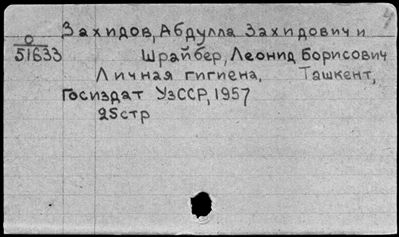 Захидов, Абдулла Захидович и
О
51633
Шрайбер, Леонид Борисович
Личная гигиена, Ташкент,
Госиздат УзССР, 1957
25стр